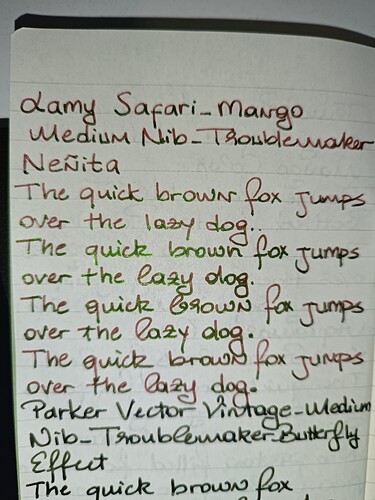 Lamy Safari-Mango
Medium Nib-Troublemaker
Neñita
The quick brown fox jumps
over the lazy dog..
The quick brown fox jumps
over the lazy dog.
The quick brown fox jumps
over the lazy dog.
The quick brown fox jumps
over the lazy dog.
Parker Vector Vintage-Medium
Nib-Troublemaker-Butterfly
Effect
The quick brown fox